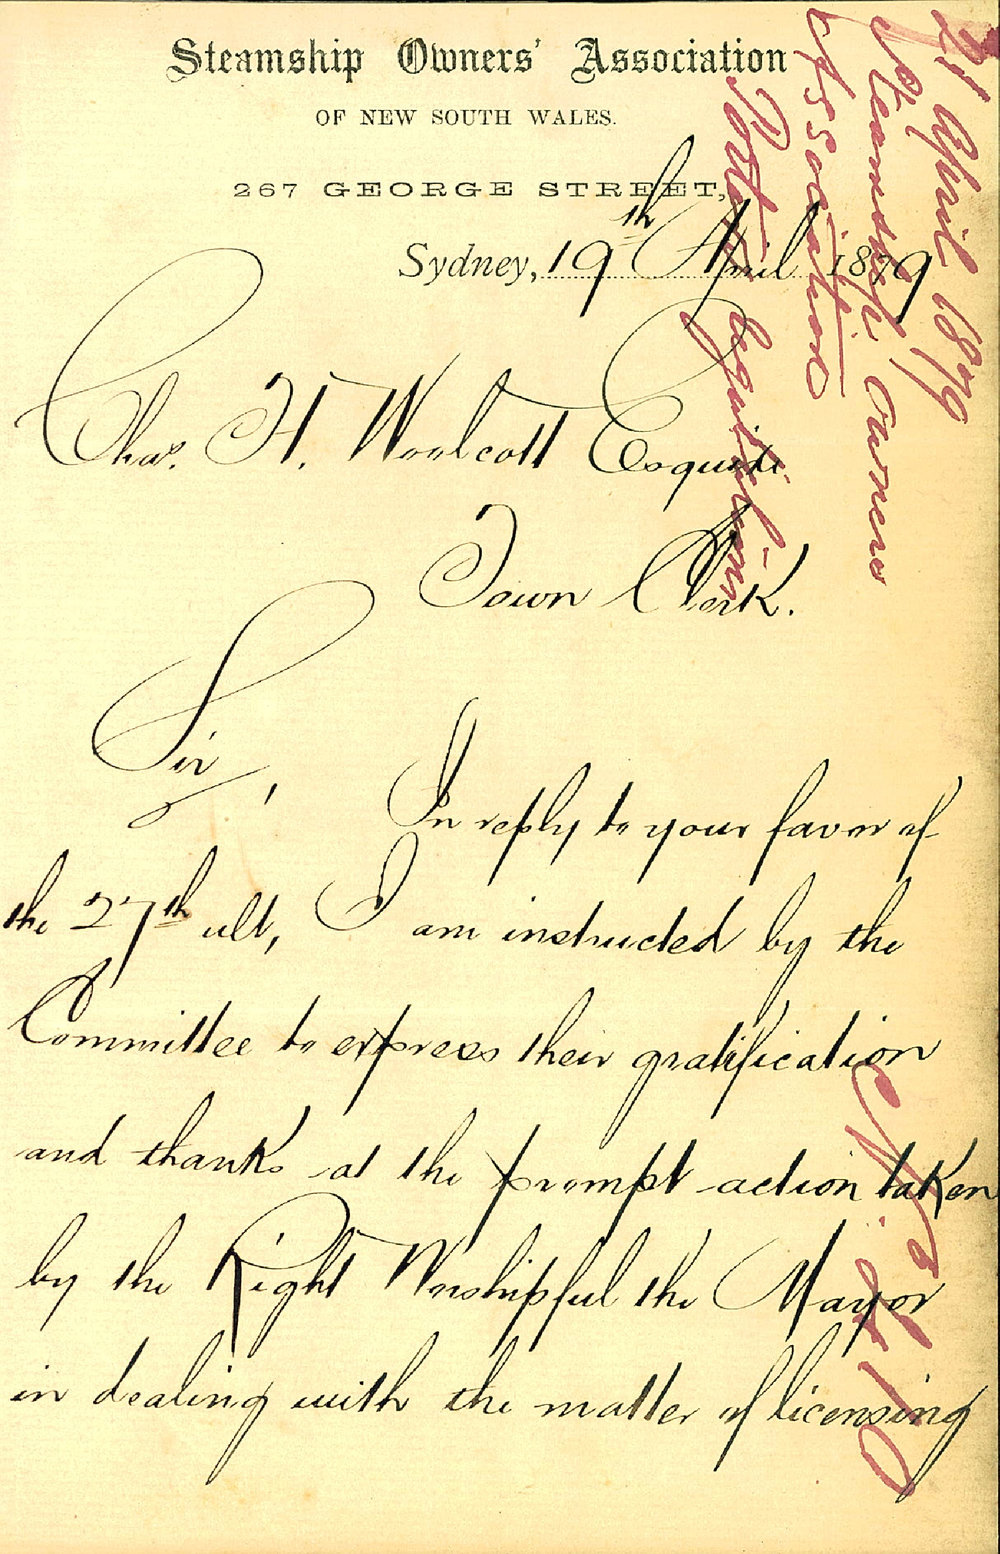 Steamship Owners' Association
OF NEW SOUTH WALES.
267 GEORGE STREET,
Sydney, 19th April 1879
Chas. H. Woolcott Esquire
Town Clerk.
Sir,
In reply to your favor of
the 27th ult, I am instructed by the
Committee to express their gratification
and thanks at the prompt action taken
by the Right Worshipful the Mayor
in dealing with the matter of licensing
21 April 1879
Steamship Owners
Association